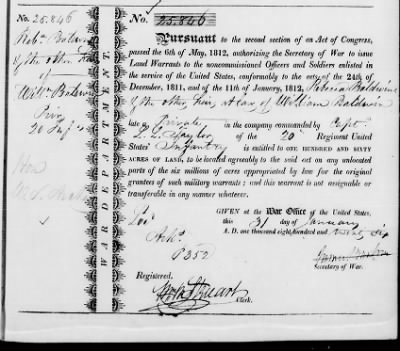 No. 25.846
of the other
of
Priv
20 Inf
Hon
WAR DEPARTMENT.
No. 25.846
Pursuant to the second section of an Act of Congress,
passed the 6th of May, 1812, authorizing the Secretary of War to issue
Land Warrants to the noncommissioned Officers and Soldiers enlisted
in the service of the United States, conformably to the acts of the 24th of
December, 1811, and of the 11th of January, 1812, Rebecca Baldwin
& the other heirs at law of William Baldwin
late a Private in the company commanded by Capt.
of the 20th Regiment United
States' Infantry
is entitled to ONE HUNDRED AND SIXTY
ACRES OF LAND, to be located agreeably to the said act on any unlocated
parts of the six millions of acres appropriated by law for the original
grantees of such military warrants; and this warrant is not assignable or
transferable in any manner whatever.
GIVEN at the War Office of the United States,
this 31 day of January
A. D. one thousand eight hundred and
Secretary of War.
Ark.
P 252
Registered.
Stuart Clerk.